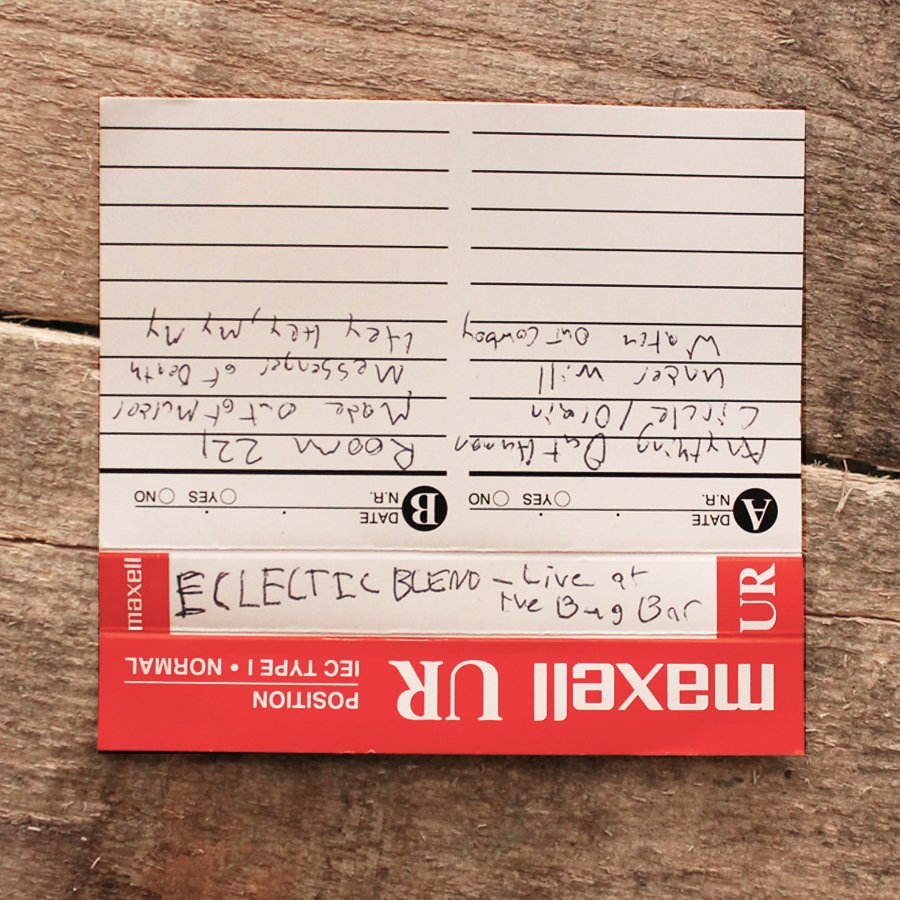 maxell UR
POSITION
IEC TYPE I • NORMAL
maxell
ECLECTIC BLEND - Live at
The Bug Bar
UR
A
DATE
N.R. YES NO
Anything But Human
Circle/Drain
Under Will
Watch Out Cowboy
B
DATE
N.R. YES NO
Room 221
Made Out of
Messenger of Death
Hey Hey, My My